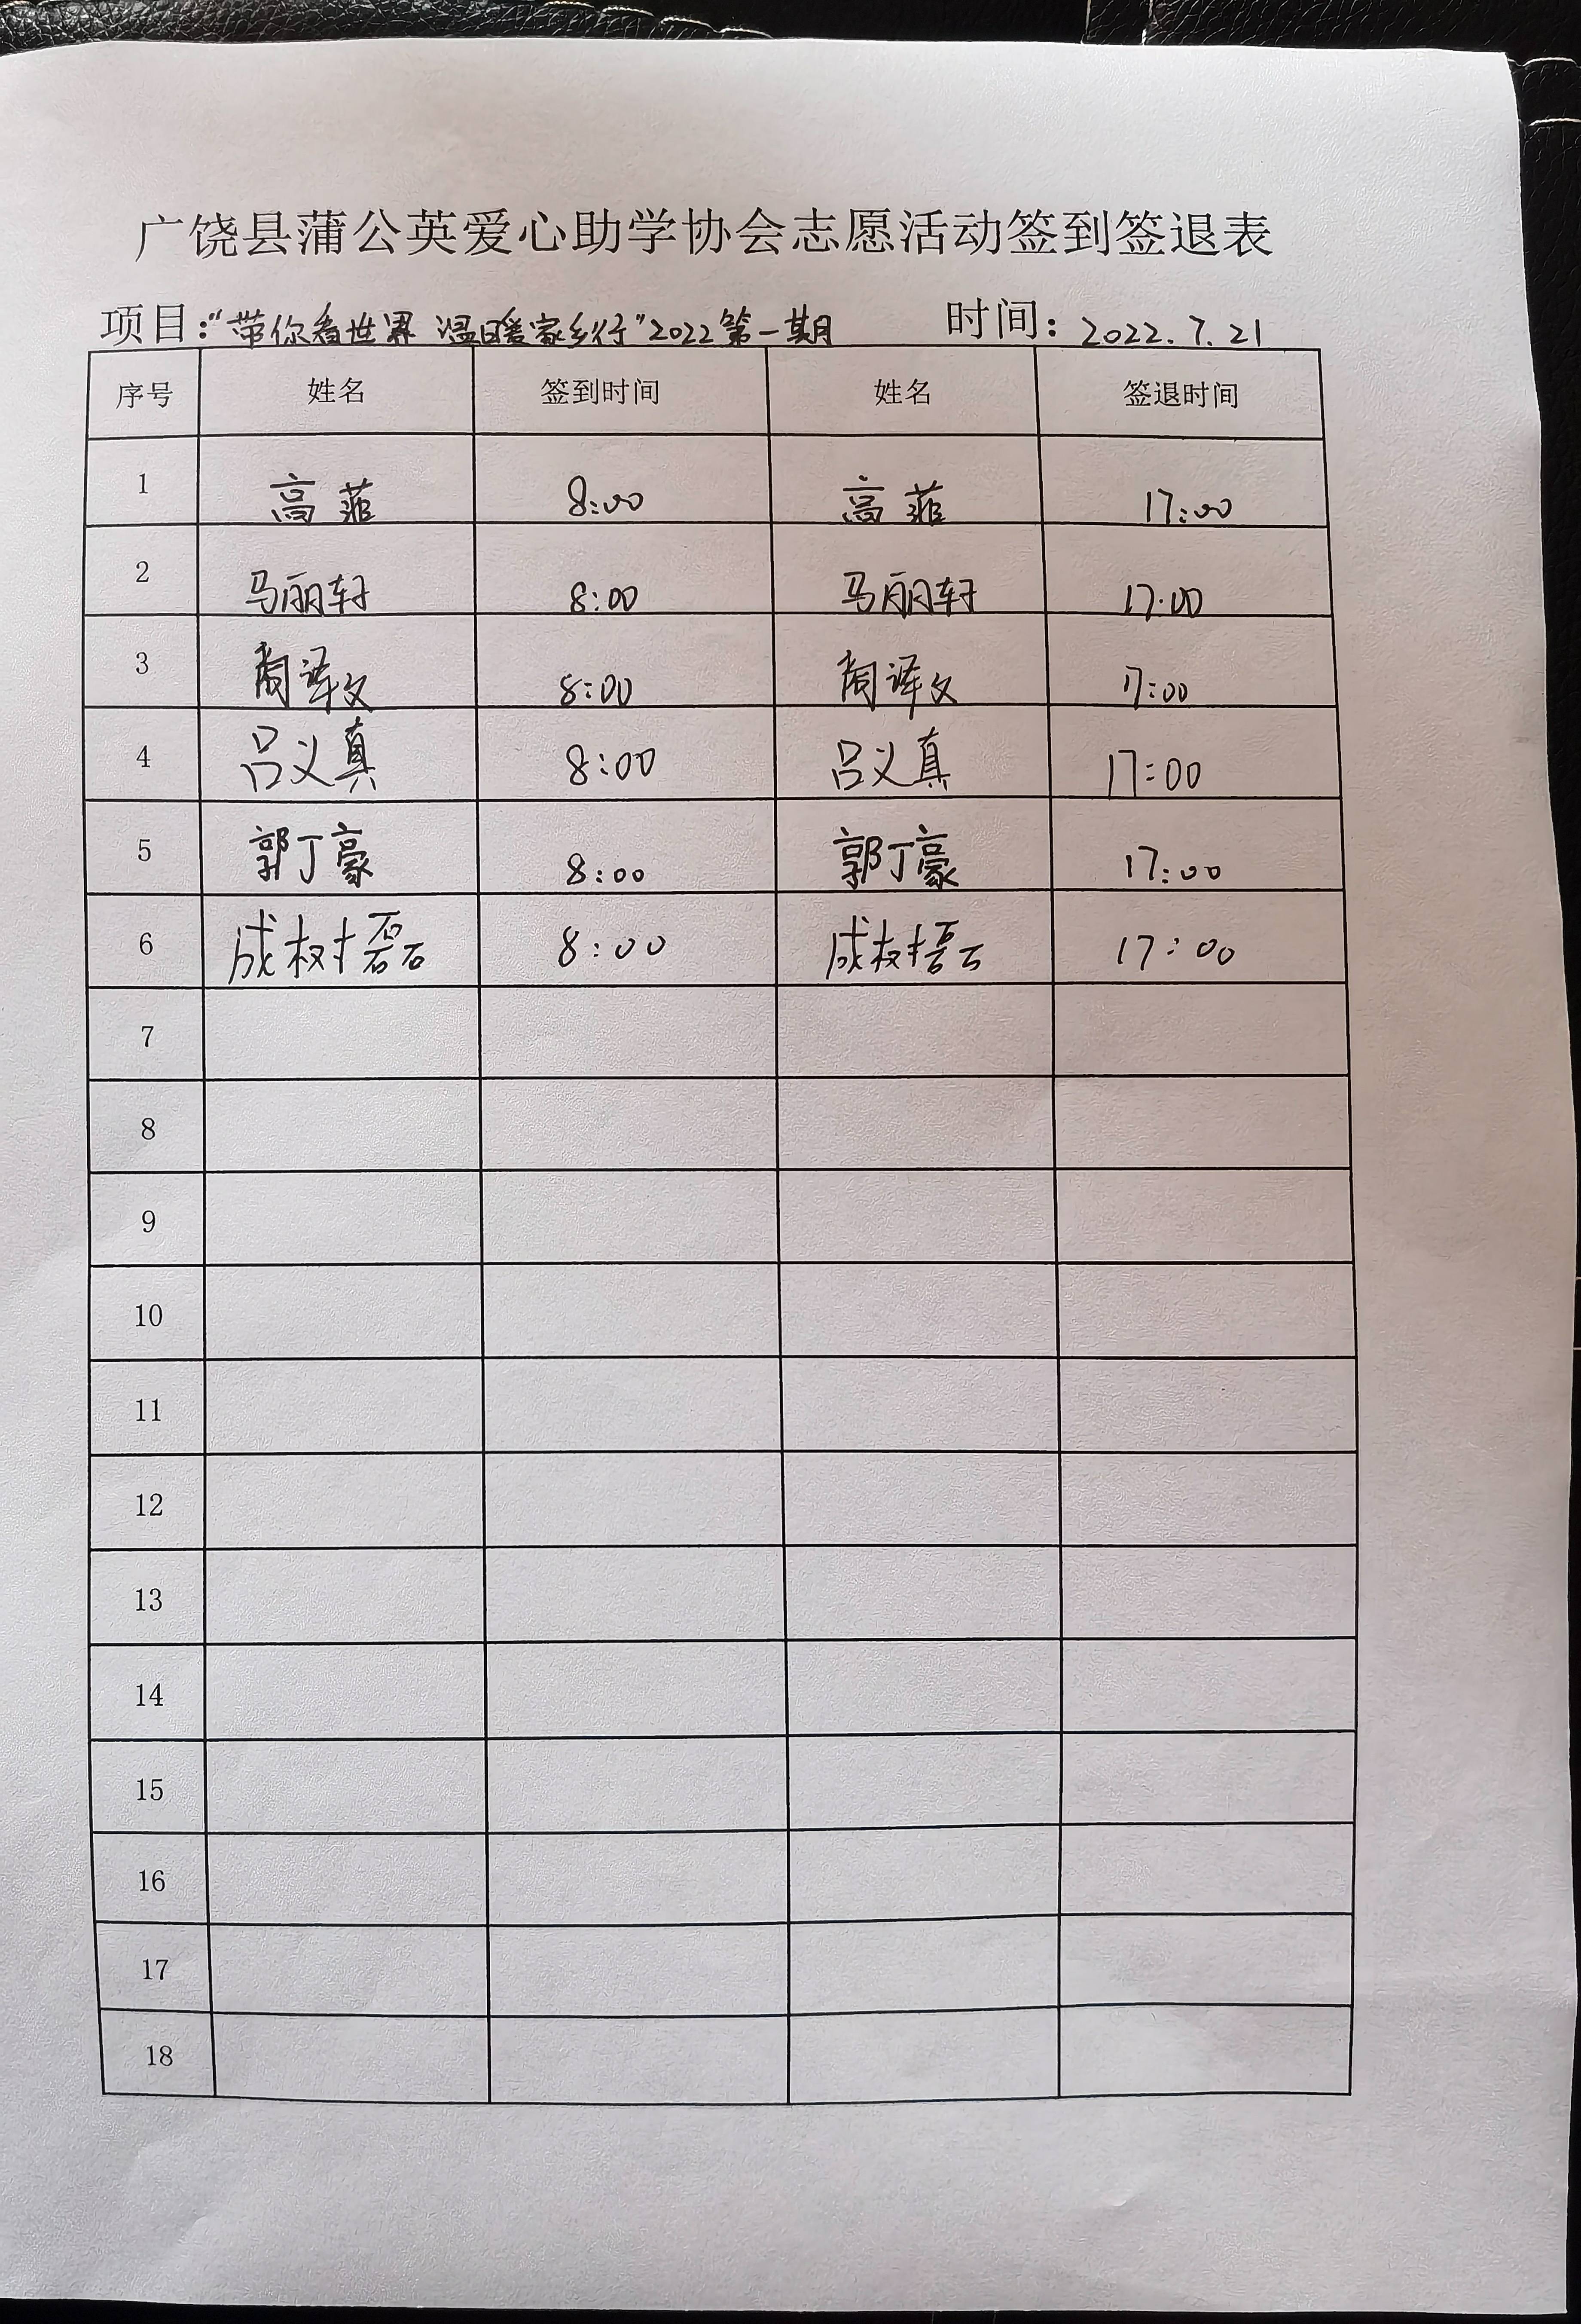 广饶县蒲公英爱心助学协会志愿活动签到签退表
项目:“带你看世界 温暖家乡行”2022第一期 时间:2022.7.21
序号 姓名 签到时间 姓名 签退时间
1 高菲 8:00 高菲 17:00
2 马丽轩 8:00 马丽轩 17:00
3 周译文 8:00 周译文 17:00
4 吕义真 8:00 吕义真 17:00
5 郭丁豪 8:00 郭丁豪 17:00
6 8:00 17:00
7
8
9
10
11
12
13
14
15
16
17
18